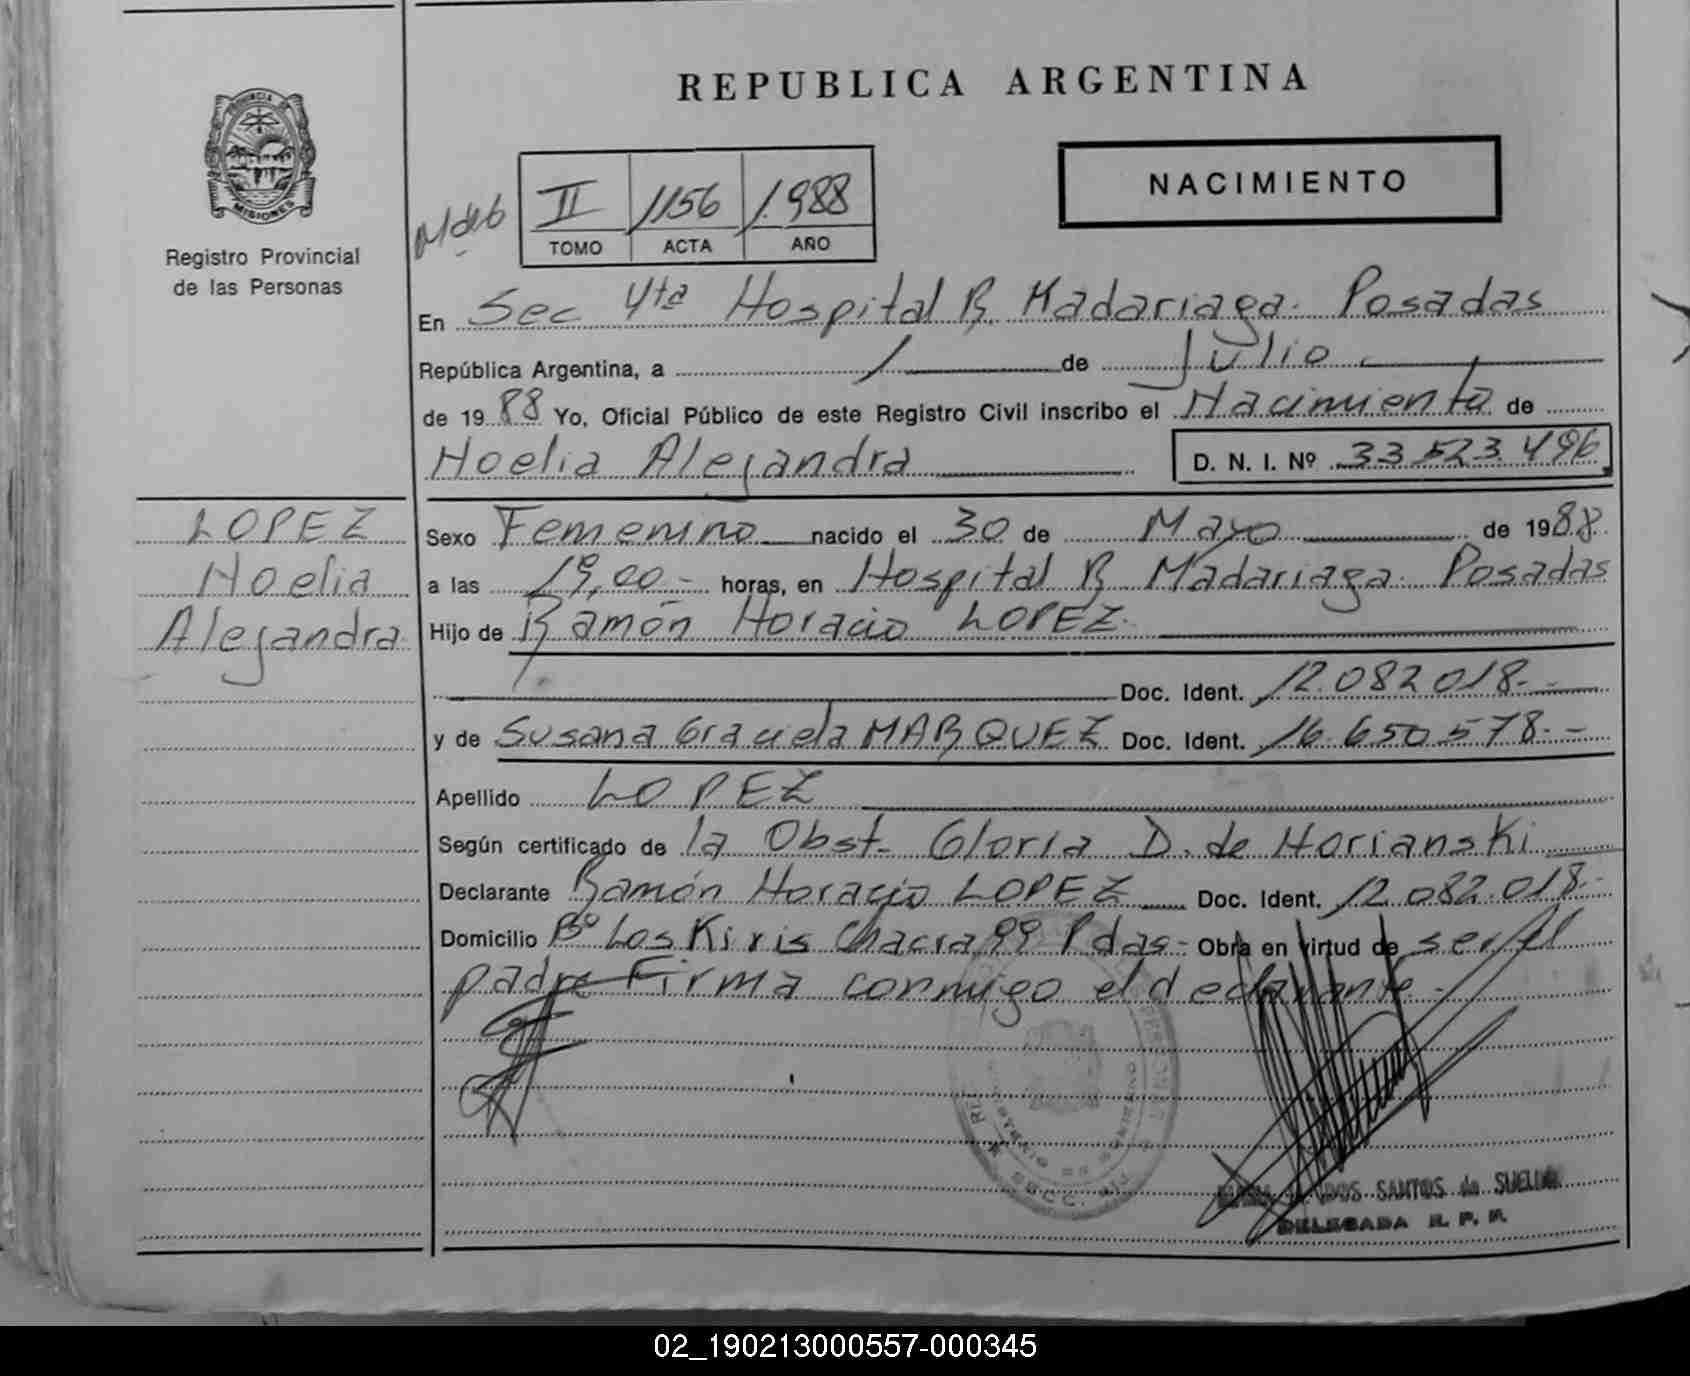 REPUBLICA ARGENTINA
PROVINCIA DE
MISIONES
Registro Provincial
de las Personas
NACIMIENTO
II 1156 1.988
TOMO ACTA AÑO
En Sec 4ta Hospital R. Madariaga. Posadas
República Argentina, a 1 de Julio
de 1988 Yo, Oficial Público de este Registro Civil inscribo el Nacimiento de
Noelia Alejandra D. N. I. Nº 33.523.496
LOPEZ
Noelia
Alejandra
Sexo Femenino nacido el 30 de Mayo de 1988.
a las 19,00- horas, en Hospital R Madariaga. Posadas
Hijo de Ramón Horacio LOPEZ.
Doc. Ident. 12.082.018.-
y de Susana Graciela MARQUEZ Doc. Ident. 16.650.578.-
Apellido LOPEZ
Según certificado de la Obst. Gloria D. de Norianski
Declarante Ramón Horacio LOPEZ Doc. Ident. 12.082.018.-
Domicilio Bº Los Kiris Chacra 99 Pdas.- Obra en virtud de ser el
padre Firma conmigo el declarante.-
DOS SANTOS de
DELEGADA R. P. P.
02_190213000557-000345